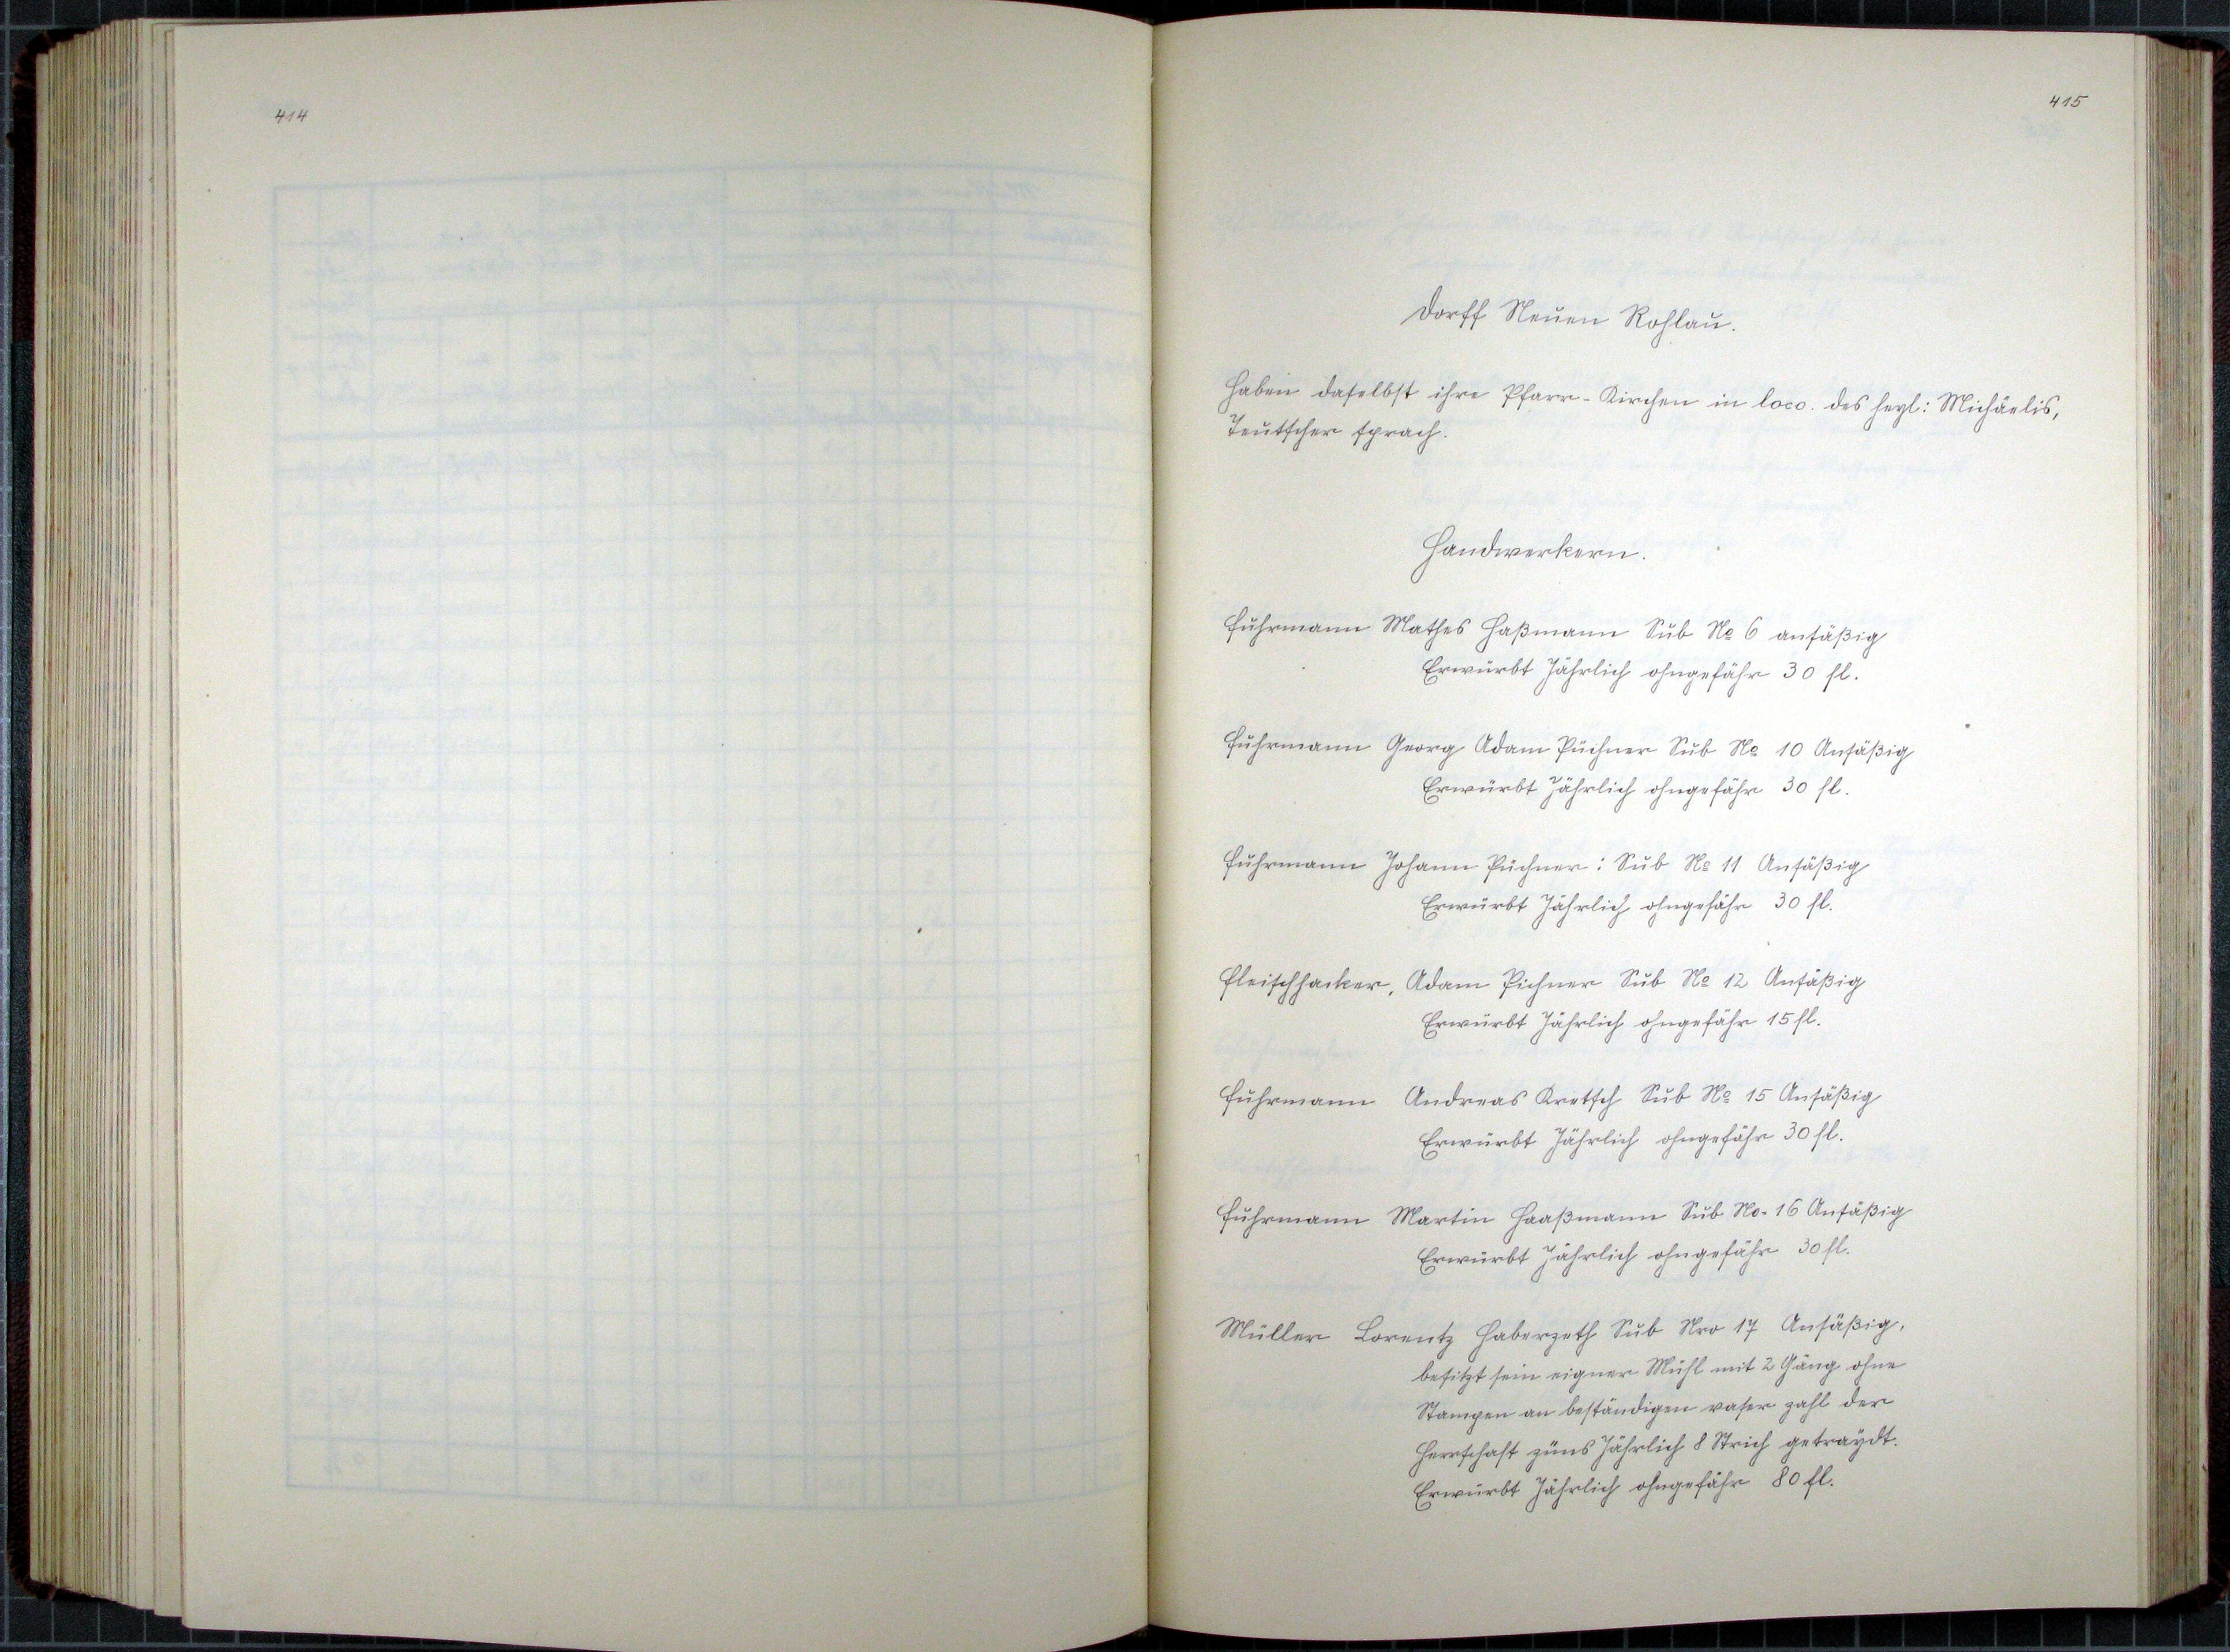 414
415
Dorff Neuen Rohlau.
Haben daselbst ihre Pfarr-Kirchen in loco. des heyl: Michäelis,
Teutscher sprach.
Handwerkern.
Fuhrmann Mathes Haßmann Sub No 6 ansäßig
Erwürbt Jährlich ohngefähr 30 fl.
Fuhrmann Georg Adam Püchner Sub No 10 Ansäßig
Erwürbt Jährlich ohngefähr 30 fl.
Fuhrmann Johann Püchner: Sub No 11 Ansäßig
Erwürbt Jährlich ohngefähr 30 fl.
Fleischhacker, Adam Pichner Sub No 12 Ansäßig
Erwürbt Jährlich ohngefähr 15 fl.
Fuhrmann Andreas Kretsch Sub No 15 Ansäßig
Erwürbt Jährlich ohngefähr 30 fl.
Fuhrmann Martin Haaßmann Sub No. 16 Ansäßig
Erwürbt Jährlich ohngefähr 30 fl.
Müller Lorentz Haberzeth Sub Nro 17 Ansäßig,
besitzt sein eigner Mühl mit 2 Gäng ohne
Stampen an beständigen waser zahl der
Herrschaft züns Jährlich 8 Strich getraÿdt.
Erwürbt Jährlich ohngefähr 80 fl.